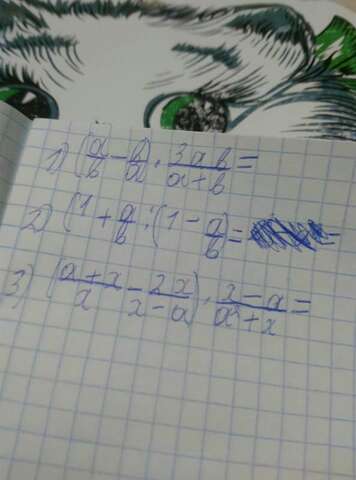 1) (a/b - b/a) · 3ab/a+b =
2) (1 + a/b) : (1 - a/b) =
3) (a+x/x - 2x/x-a) · x-a/a²+x =